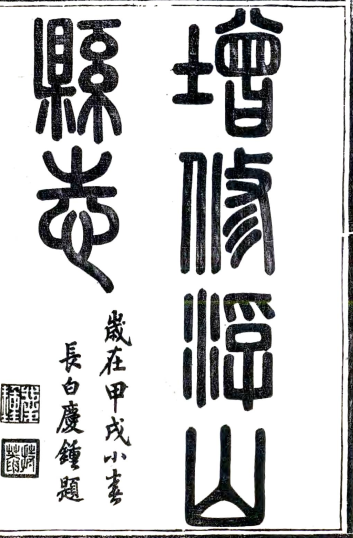 增修浮山
縣志
歲在甲戌小春
長白慶鍾題